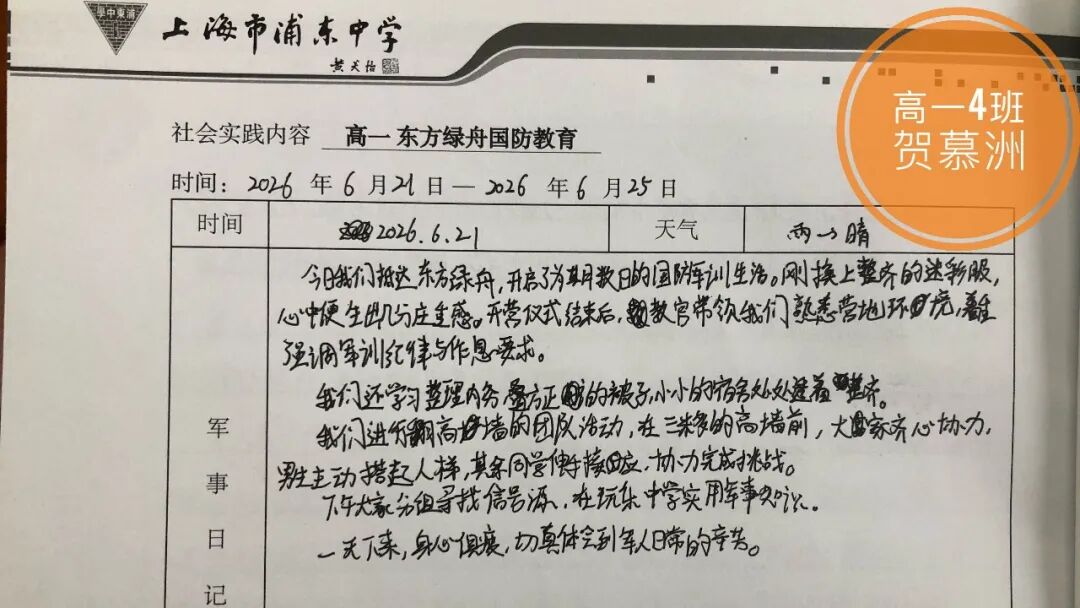 上海市浦东中学
黄炎培
高一4班
贺慕洲
社会实践内容 高一 东方绿舟国防教育
时间：2026 年 6 月 21 日 — 2026 年 6 月 25 日
时间 2026.6.21 天气 雨→晴
军事日记
今日我们抵达东方绿舟，开启了为期数日的国防军训生活。刚换上整齐的迷彩服，
心中便生出几分庄重感。开营仪式结束后，教官带领我们熟悉营地环境，着重
强调军训纪律与作息要求。
我们还学习整理内务 叠方正的被子，小小的宿舍处处透着整齐。
我们进行翻高墙的团队活动，在三米多的高墙前，大家齐心协力，
男生主动搭起人梯，其余同学伸手接应，协力完成挑战。
下午大家分组寻找信号源，在玩乐中学实用军事知识。
一天下来，身心俱疲，切真体会到军人日常的辛苦。